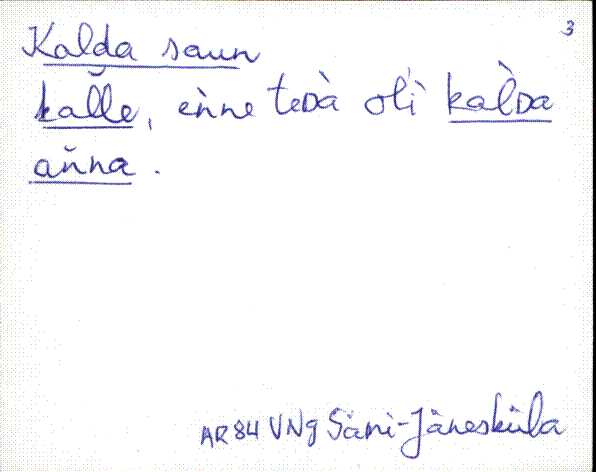 3
Kalda saun
kal̆le, èǹne teᴅà ol̀i kal̀ᴅa
an̆na.
AR 84 VNg Sämi-Jänesküla